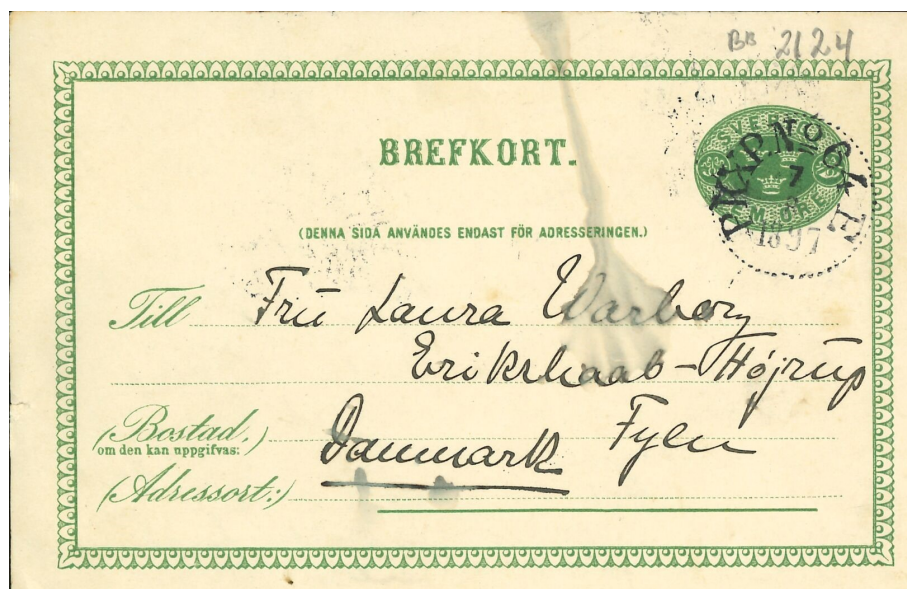 BB 2124
BREFKORT.
SVERIGE
FEM ÖRE
PKXP. No 6
7
1897
(DENNA SIDA ANVÄNDES ENDAST FÖR ADRESSERINGEN.)
Till Fru Laura Warberg
Erikshaab - Højrup
(Bostad,) Fyen
om den kan uppgifvas:
Danmark
(Adressort:)